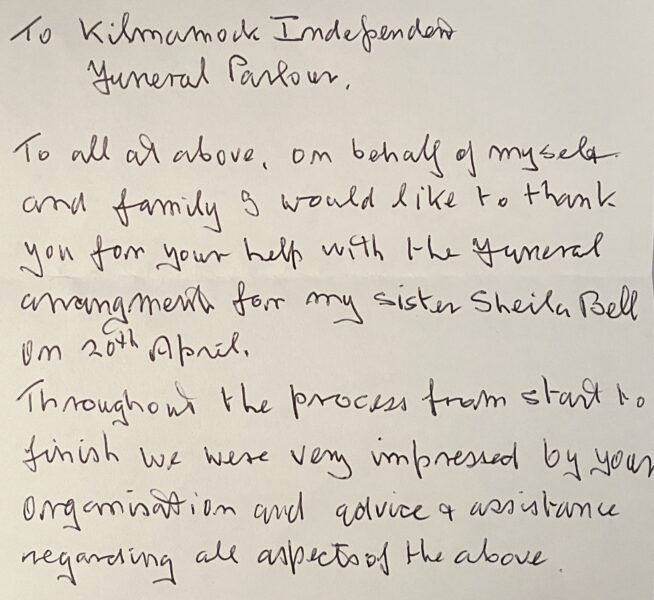 To Kilmarnock Independent
Funeral Parlour.
To all at above, on behalf of myself
and family I would like to thank
you for your help with the Funeral
arrangments for my sister Sheila Bell
on 20th April.
Throughout the process from start to
finish we were very impressed by your
organisation and advice & assistance
regarding all aspects of the above.